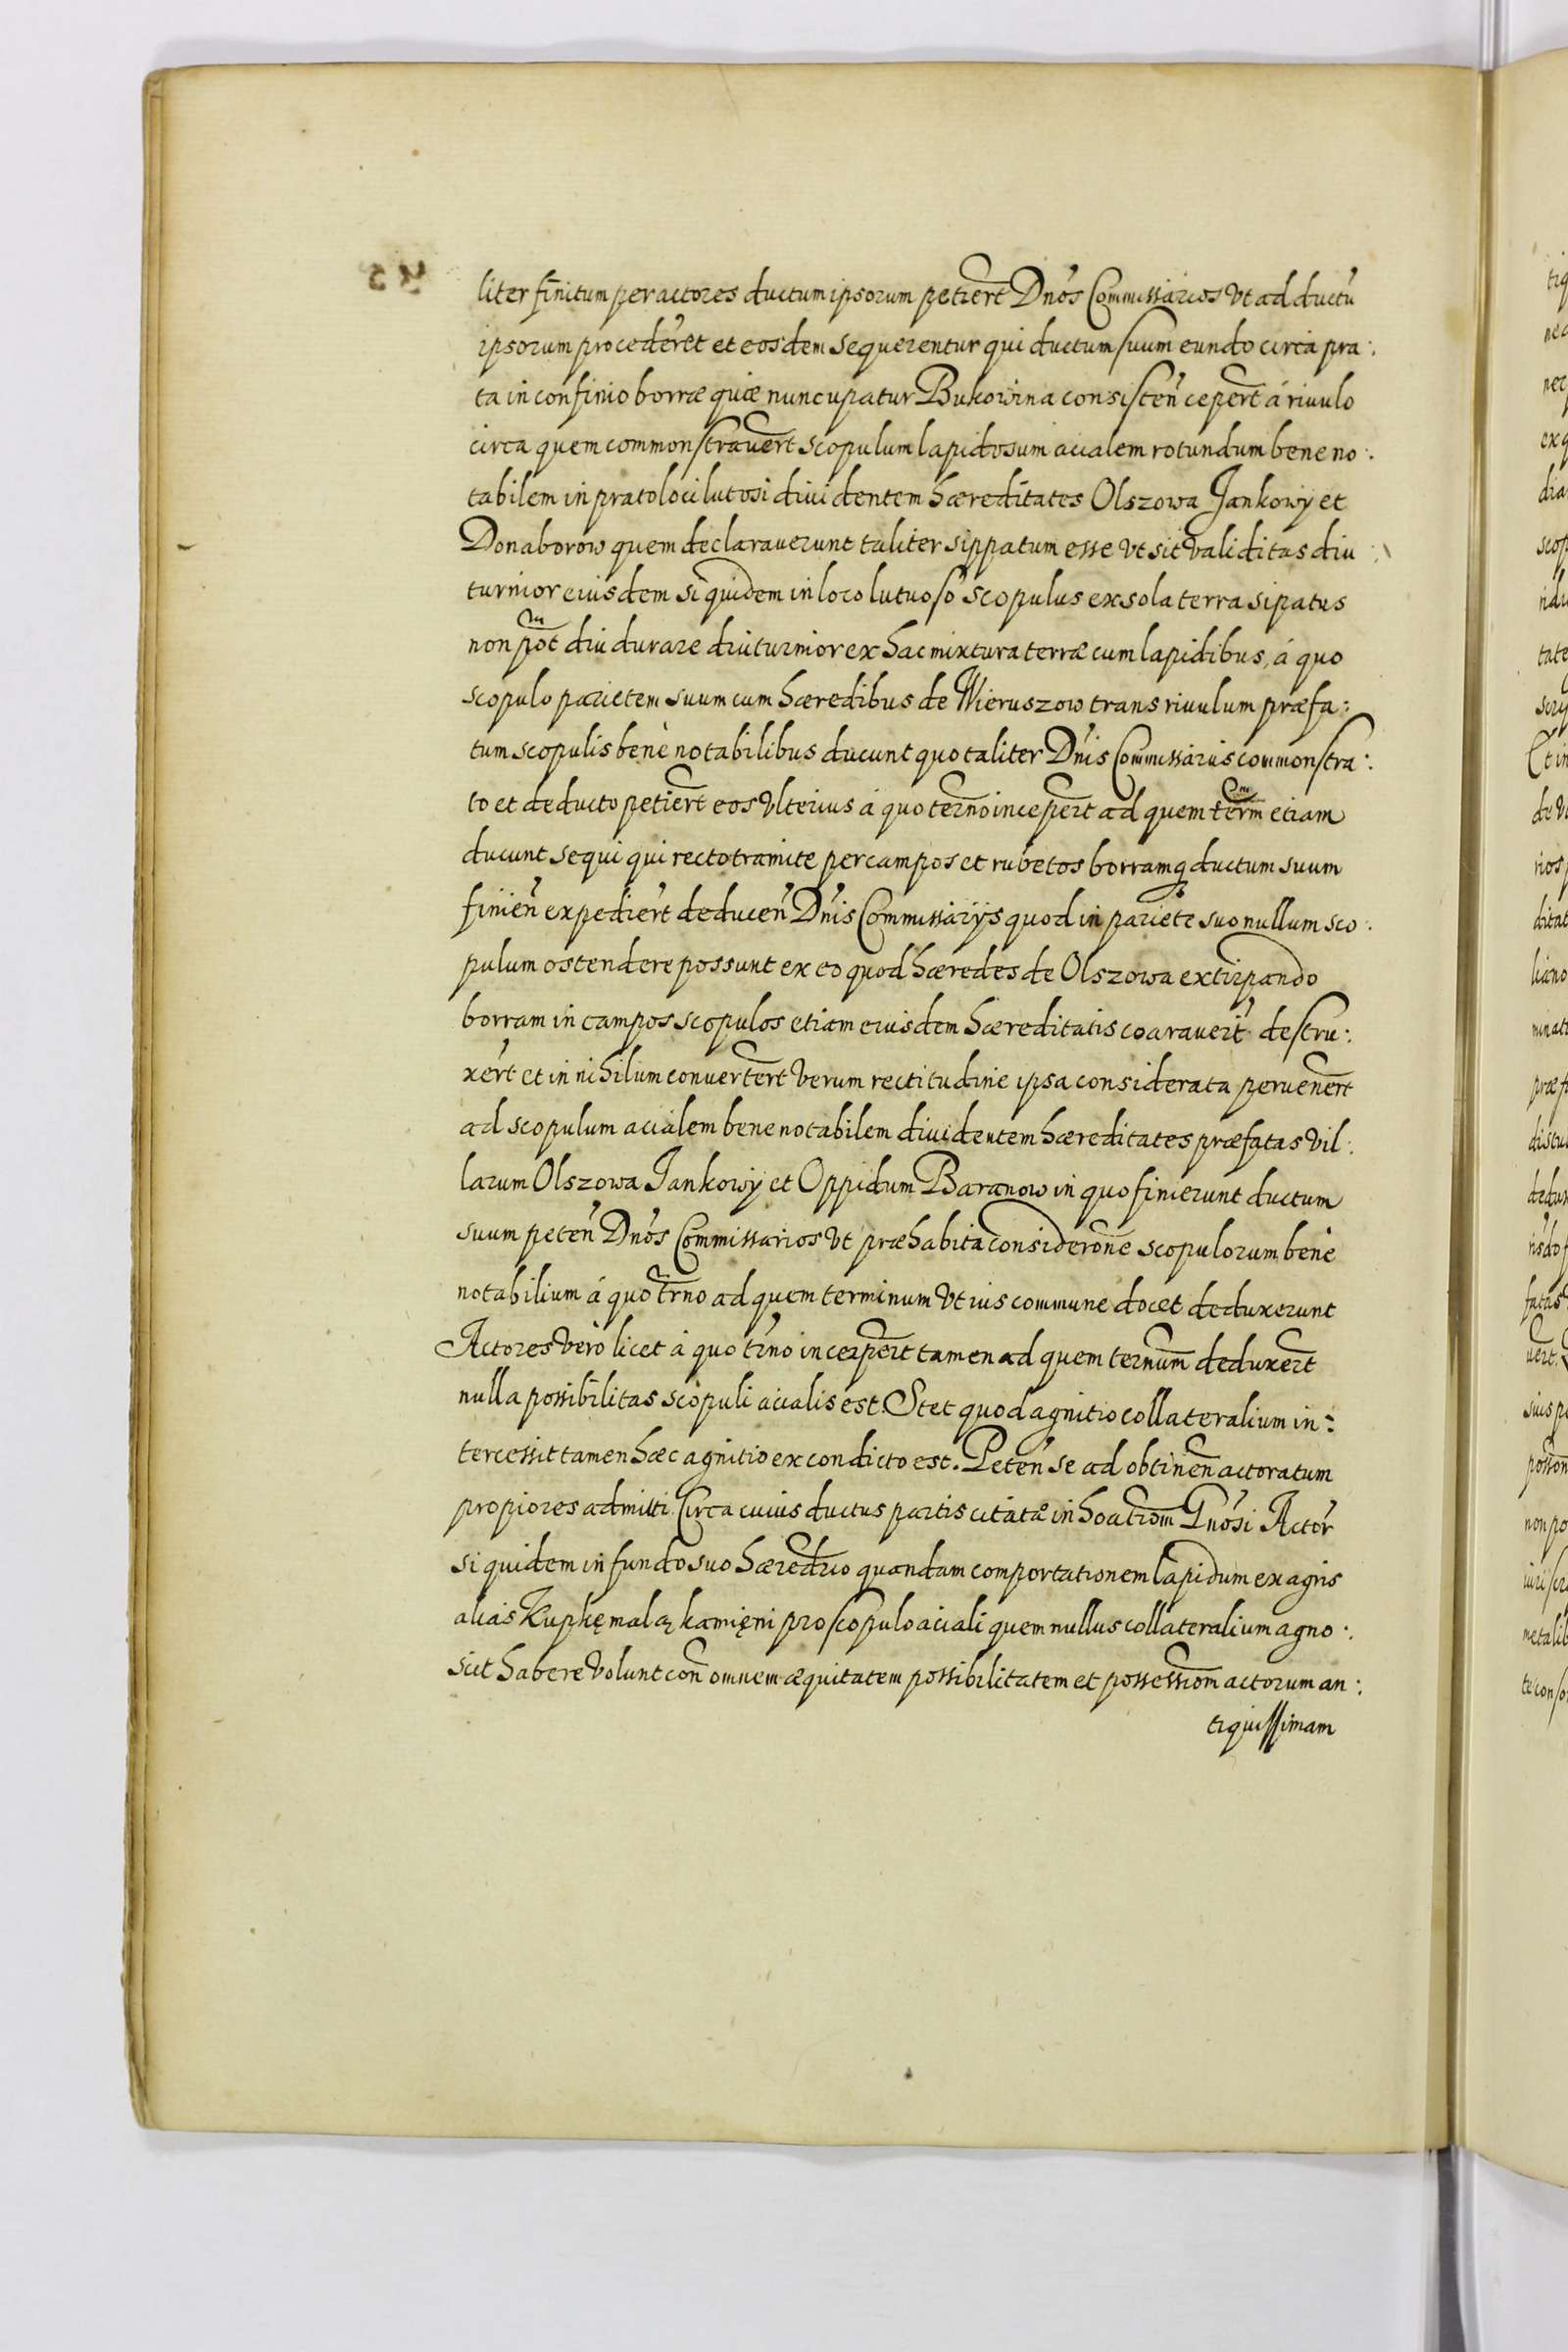 liter finitum per actores ductum ipsorum petiert Dnos Commissarios Vt ad ductu
ipsorum procederet et eosdem sequerentur qui ductum suum eundo circa pra:
ta in confinio borræ quæ nuncupatur Bukowina consisten cepert á riuulo
circa quem commonstrauert scopulum lapidosum acialem rotundum bene no:
tabilem in prato loci lutosi diuidentem hæreditates Olszowa Jankowy et
Donaborow quem declarauerunt taliter sippatum esse Vt sit Validitas diu
turnior eiusdem siquidem in loco lutuoso scopulus ex sola terra sipatus
non pot diu durare diuturnior ex hac mixtura terræ cum lapidibus, á quo
scopulo parietem suum cum hæredibus de Wieruszow trans riuulum præfa:
tum scopulis benè notabilibus ducunt quo taliter Dnis Commissariis commonstra:
to et deducto petiert eos Vlterius á quo termno incepert ad quem term etiam
ducunt sequi qui recto tramite per campos et rubetos borramq ductum suum
finien expediert deducen Dnis Commissarijs quod in pariete suo nullum sco:
pulum ostendere possunt ex eo quod hæredes de Olszowa extirpando
borram in campos scopulos etiam eiusdem hæreditatis coarauert destru:
xert et in nihilum conuertert Verum rectitudine ipsa considerata peruenert
ad scopulum acialem bene notabilem diuidentem hæreditates præfatas Vil:
larum Olszowa Jankowy et Oppidum Baranow in quo finierunt ductum
suum peten Dnos Commissarios Vt præhabita considerone scopulorum benè
notabilium á quo trno ad quem terminum Vt ius commune docet deduxerunt
Actores Verò licet á quo trno incepert tamen ad quem ternum deduxert
nulla possibilitas scopuli acialis est. Stet quod agnitio collateralium in:
tercessit tamen hæc agnitio ex condicto est. Peten se ad obtinen actoratum
propiores admitti. Circa cuius ductus partis citatæ inhoatiom Gnosi Actor
siquidem in fundo suo hæredrio quandam comportationem lapidum ex agris
alias Kupkę małą kamięni pro scopulo aciali quem nullus collateralium agno:
scit habere Volunt con omnem æquitatem possibilitatem et possessiom actorum an:
tiquissimam